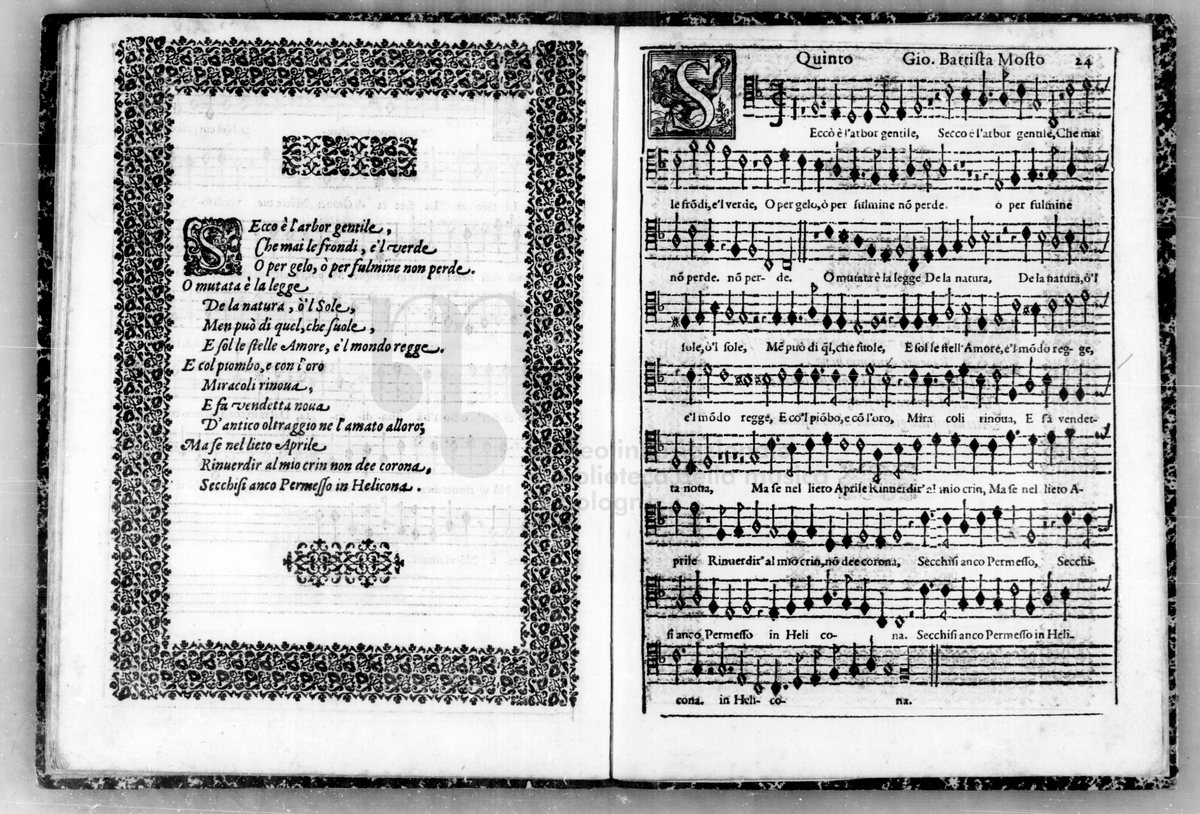 SEcco è l'arbor gentile,
Che mai le frondi, e'l verde
O per gelo, ò per fulmine non perde.
O mutata è la legge
De la natura, ò'l Sole,
Men può di quel, che suole,
E sol le stelle Amore, e'l mondo regge.
E col piombo, e con l'oro
Miracoli rinoua,
E fa vendetta noua
D'antico oltraggio ne l'amato alloro;
Ma se nel lieto Aprile
Rinuerdir al mio crin non dee corona,
Secchisi anco Permesso in Helicona.
Quinto Gio. Battista Mosto 24
S Eccò è l'arbor gentile, Secco è l'arbor gentile, Che mai
le frõdi, e'l verde, O per gelo, ò per fulmine nõ perde. ò per fulmine
nõ perde. nõ per- de. O mutata è la legge De la natura, De la natura, ò'l
sole, ò'l sole, Mẽ può di q̃l, che suole, E sol le stell'Amore, e'l mõdo reg- ge,
e'l mõdo regge, E co'l piõbo, e cõ l'oro, Mira coli rinoua, E fà vendet-
ta noua, Ma se nel lieto Aprile Rinuerdir' al mio crin, Ma se nel lieto A-
prile Rinuerdir' al mio crin, nõ dee corona, Secchisi anco Permesso, Secchi-
si anco Permesso in Heli co- na. Secchisi anco Permesso in Heli-
cona. in Heli- co- na.